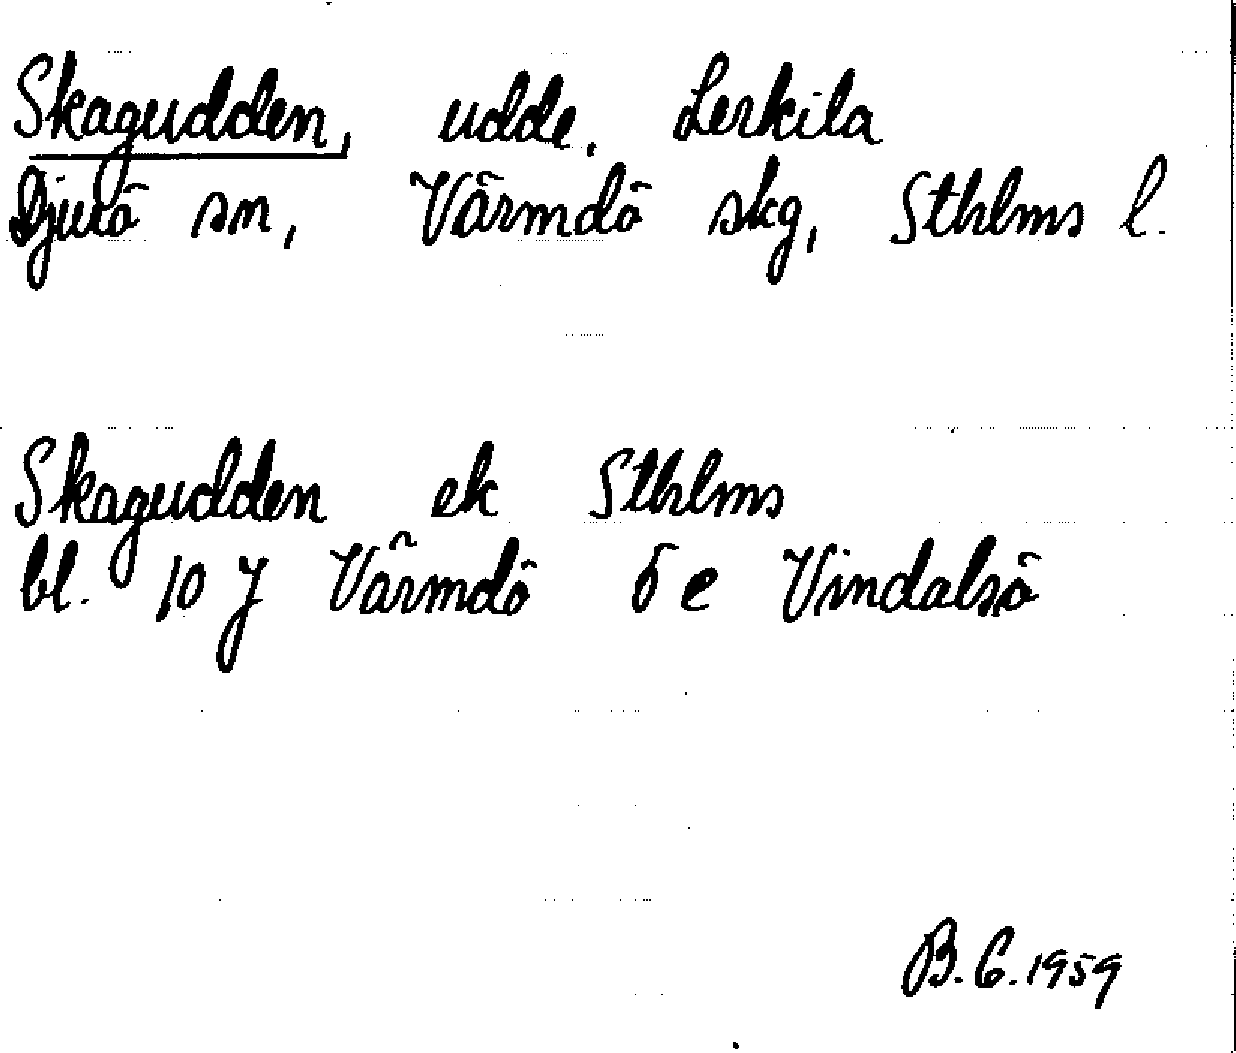 Skagudden, udde. Lerkila
Djurö sn, Värmdö skg, Sthlms l.
Skagudden ek Sthlms
bl. 10 J Värmdö 5 e Vindalsö
B.G. 1959